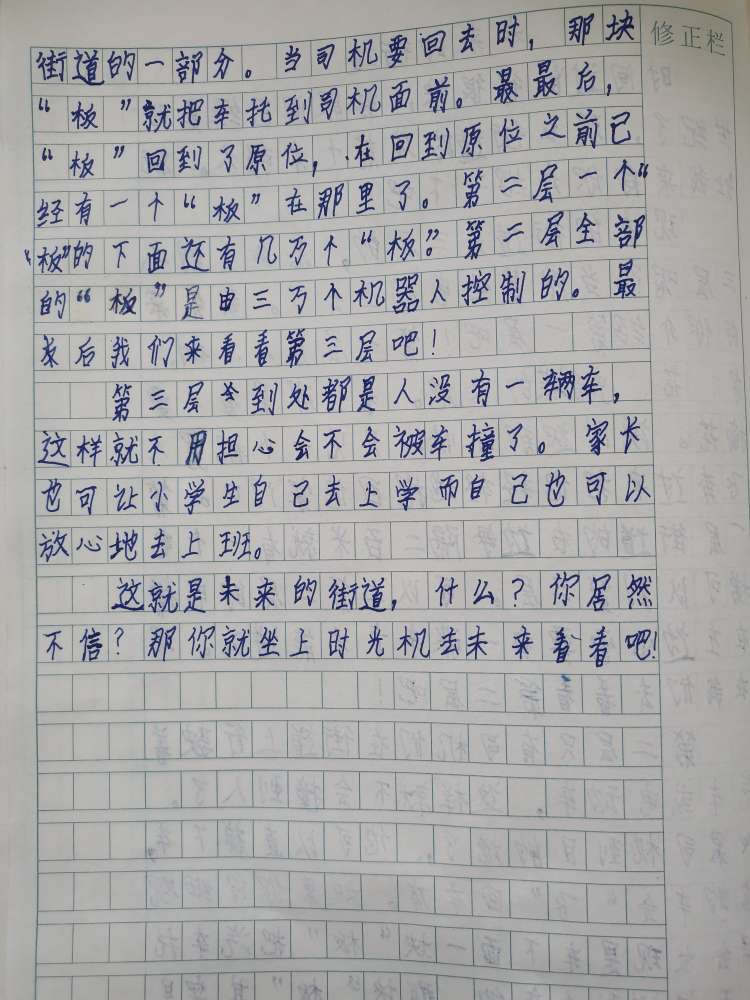 修正栏
街道的一部分。当司机要回去时，那块
“板”就把车托到司机面前。最最后，
“板”回到了原位，在回到原位之前已
经有一个“板”在那里了。第二层一个“
“板”的下面还有几万个“板”。第二层全部
的“板”是由三万个机器人控制的。最
后我们来看看第三层吧！
第三层到处都是人没有一辆车，
这样就不用担心会不会被车撞了。家长
也可让小学生自己去上学而自己也可以
放心地去上班。
这就是未来的街道，什么？你居然
不信？那你就坐上时光机去未来看看吧！